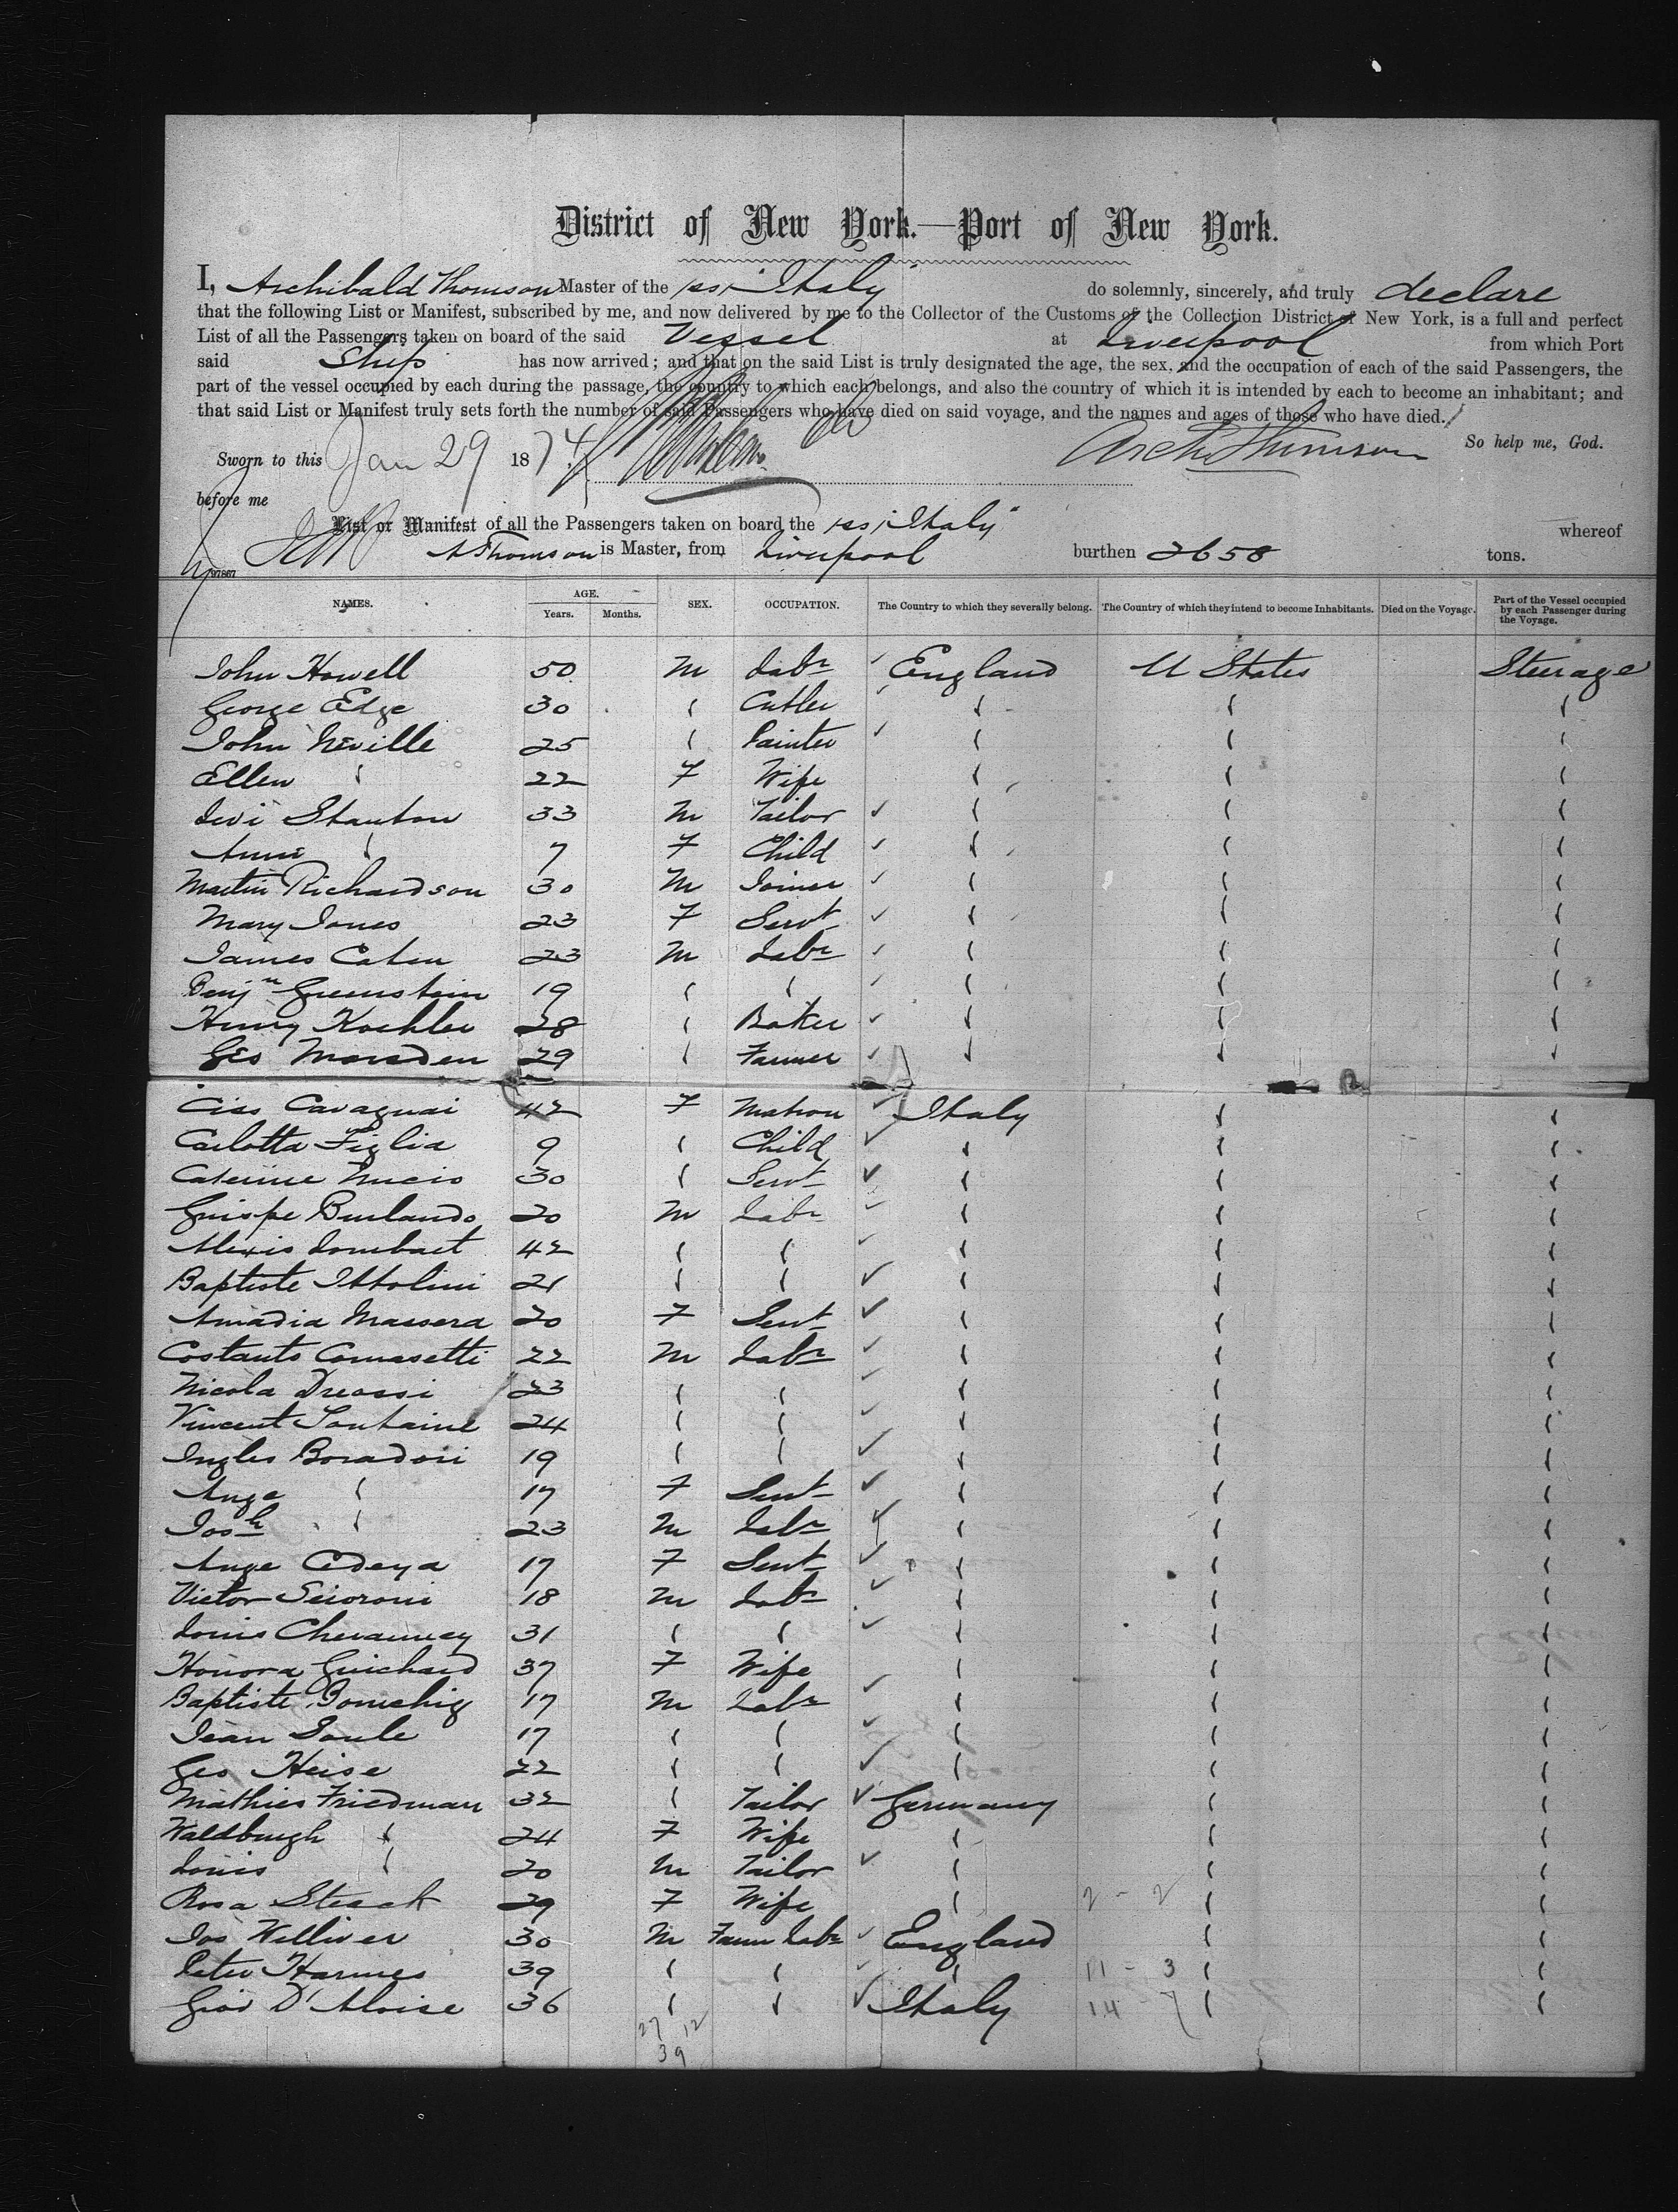 District of New York.—Port of New York.
I, Archibald Thomson Master of the ss "Italy" do solemnly, sincerely, and truly declare
that the following List or Manifest, subscribed by me, and now delivered by me to the Collector of the Customs of the Collection District of New York, is a full and perfect
List of all the Passengers taken on board of the said Vessel at Liverpool from which Port
said Ship has now arrived; and that on the said List is truly designated the age, the sex, and the occupation of each of the said Passengers, the
part of the vessel occupied by each during the passage, the country to which each belongs, and also the country of which it is intended by each to become an inhabitant; and
that said List or Manifest truly sets forth the number of said Passengers who have died on said voyage, and the names and ages of those who have died.
So help me, God.
Sworn to this Jan 29 1874 Archd Thomson
before me
List or Manifest of all the Passengers taken on board the ss "Italy" whereof
A Thomson is Master, from Liverpool burthen 2658 tons.
NAMES. AGE. Years. Months. SEX. OCCUPATION. The Country to which they severally belong. The Country of which they intend to become Inhabitants. Died on the Voyage. Part of the Vessel occupied by each Passenger during the Voyage.
John Howell 50 M Labr England U States Steerage
George Edge 30 " Cutler " " "
John Neville 25 " Painter " " "
Ellen " 22 F Wife " " "
Levi Stanton 33 M Tailor " " "
Annie " 7 F Child " " "
Martin Richardson 30 M Joiner " " "
Mary Jones 23 F Servt " " "
James Cahen 23 M Labr " " "
Benjn Greenstein 19 " " " " "
Henry Koehler 28 " Baker " " "
Geo Marsden 29 " Farmer " " "
Ciss Cavagnai 42 F Matron Italy " "
Carlotta Figlia 9 " Child " " "
Caterine Nucio 30 " Servt " " "
Guispe Burlando 20 M Labr " " "
Alexis Lombart 42 " " " " "
Baptiste Ittolini 21 " " " " "
Amadia Massera 20 F Servt " " "
Costanto Comasetti 22 M Labr " " "
Nicola Dreossi 23 " " " " "
Vincent Fontaine 24 " " " " "
Ingles Boradori 19 " " " " "
Ange " 17 F Servt " " "
Josh " 23 M Labr " " "
Ange Odeya 17 F Servt " " "
Victor Scioroni 18 M Labr " " "
Louis Chevanney 31 " " " " "
Honora Guichard 37 F Wife " " "
Baptiste 17 M Labr " " "
Jean Soule 17 " " " " "
Geo Heise 22 " " " " "
Mathies Friedman 32 " Tailor Germany " "
Waldburgh " 24 F Wife " " "
Louis " 20 M Tailor " " "
Rosa Steack 29 F Wife " 2 - 2 " "
Jos Welliver 30 M Farm Labr England " "
Peter Harmes 39 " " " 11 - 3 " "
Giov D'Aloise 36 " " Italy 14 - 7 " "
27 12
39